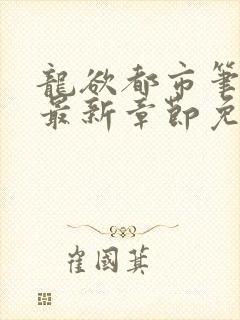 龍欲都市筆
最新章節免
崔國萁